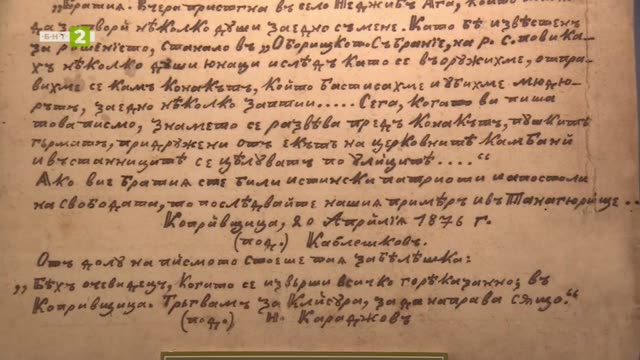 „Братия. Вчера пристигна въ село Неджибъ Ага, който
да затвори нѣколко души заедно съ мене. Като бѣ извѣстенъ
за рѣшението, станало въ „Оборищкото Събрание, на р. с. повика-
хъ нѣколко души юнаци и слѣдъ като се въоръжихме, отпра-
вихме се къмъ конакътъ, който бастисахме и убихме мюдю-
рътъ, заедно нѣколко заптии..... Сега, когато ви пиша
това писмо, знамето се развѣва предъ конакътъ, пушкитѣ
гърмятъ, придружени отъ екътъ на церковнитѣ камбани
и въстанницитѣ се цѣлуватъ по улицитѣ....“
Ако вие братия сте били истински патриоти и апостоли
на свободата, то последвайте нашия примѣръ и въ Панагюрище..
Копривщица, 20 Априлия 1876 г.
(под.) Каблешковъ.
Отъ долу на писмото стоеше тая забѣлѣшка:
„Бѣхъ очевидецъ, когато се извърши всичко горѣказанно въ
Копривщица. Тръгвамъ за Клисура, за да направа сѫщо.“
(под.) Н. Караджовъ
БНТ 2